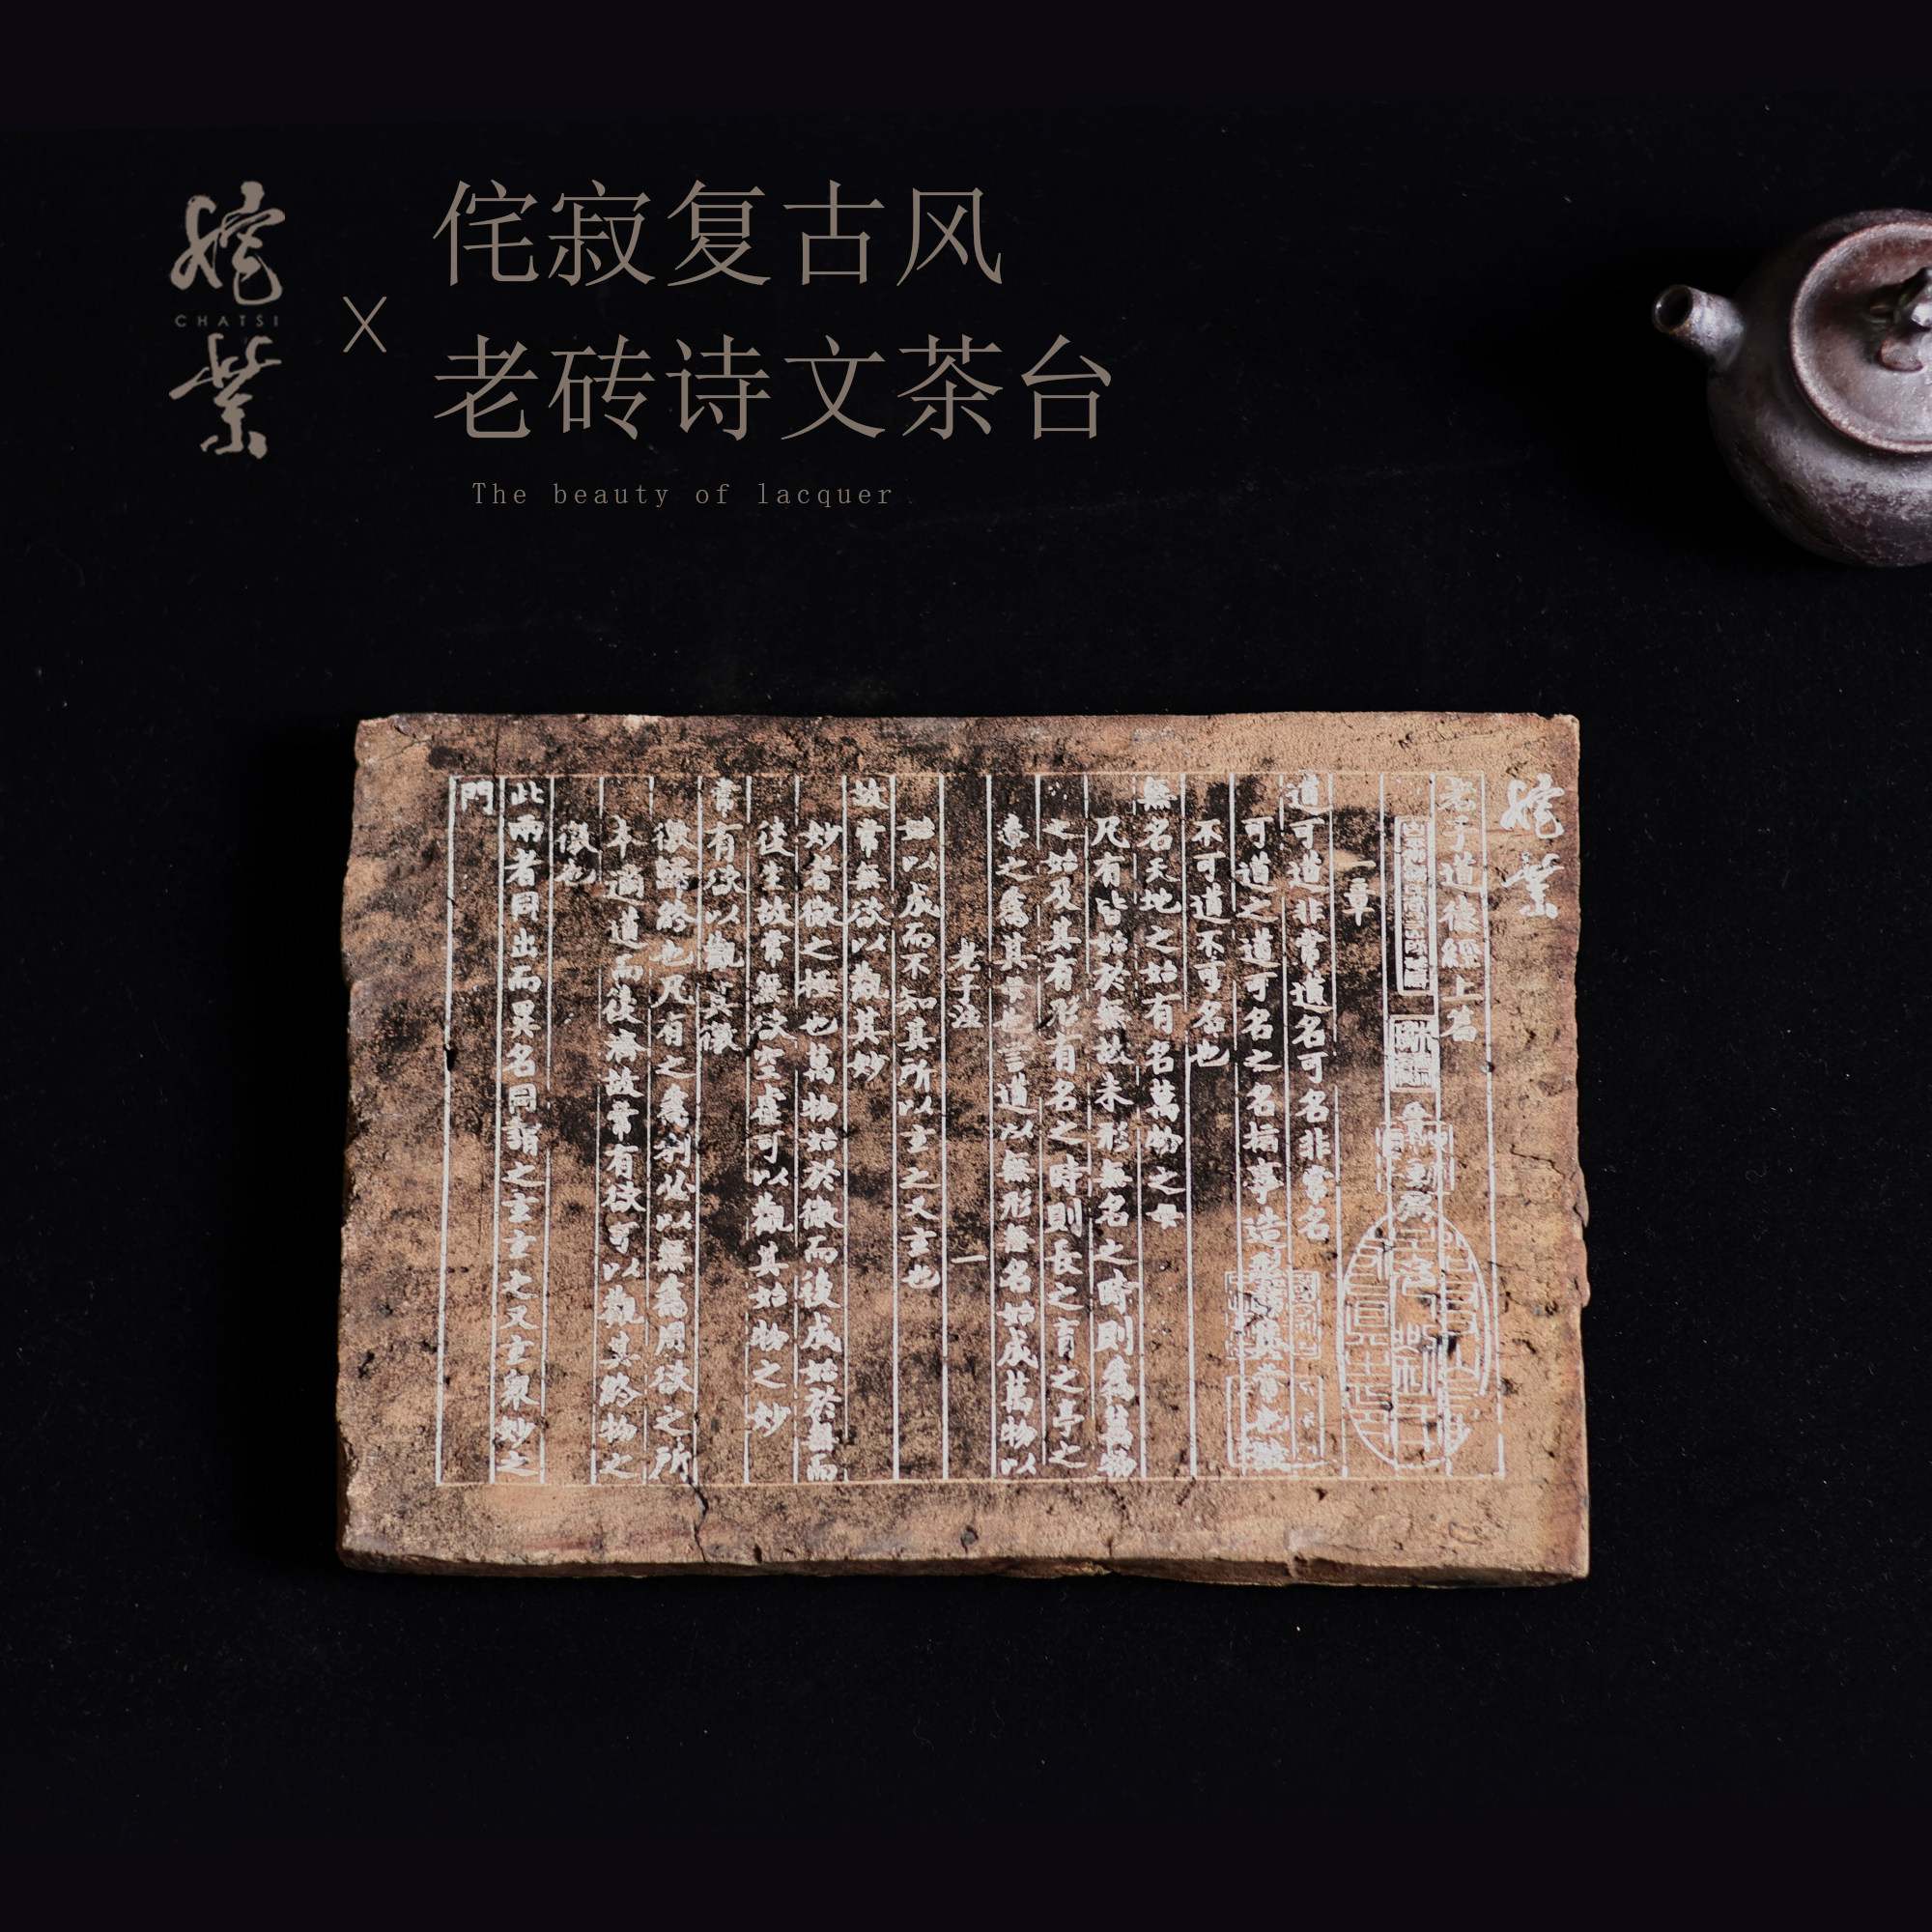 姹
CHATSI
紫
X
侘寂复古风
老砖诗文茶台
The beauty of lacquer
姹紫
老子道德經上
一章
道可道非常道名可名非常名
可道之道可名之名指事造形非其常也故
不可道不可名也
無名天地之始有名萬物之母
凡有皆始於無故未形無名之時則為萬物
之始及其有形有名之時則長之育之亭之
毒之為其母也言道以無形無名始成萬物以
老子注 一
始以成而不知其所以玄之又玄也
故常無欲以觀其妙
妙者微之極也萬物始於微而後成始於無而
後生故常無欲空虛可以觀其始物之妙
常有欲以觀其徼
徼歸終也凡有之為利必以無為用欲之所
本適道而後濟故常有欲可以觀其終物之
徼也
此兩者同出而異名同謂之玄玄之又玄眾妙之
門